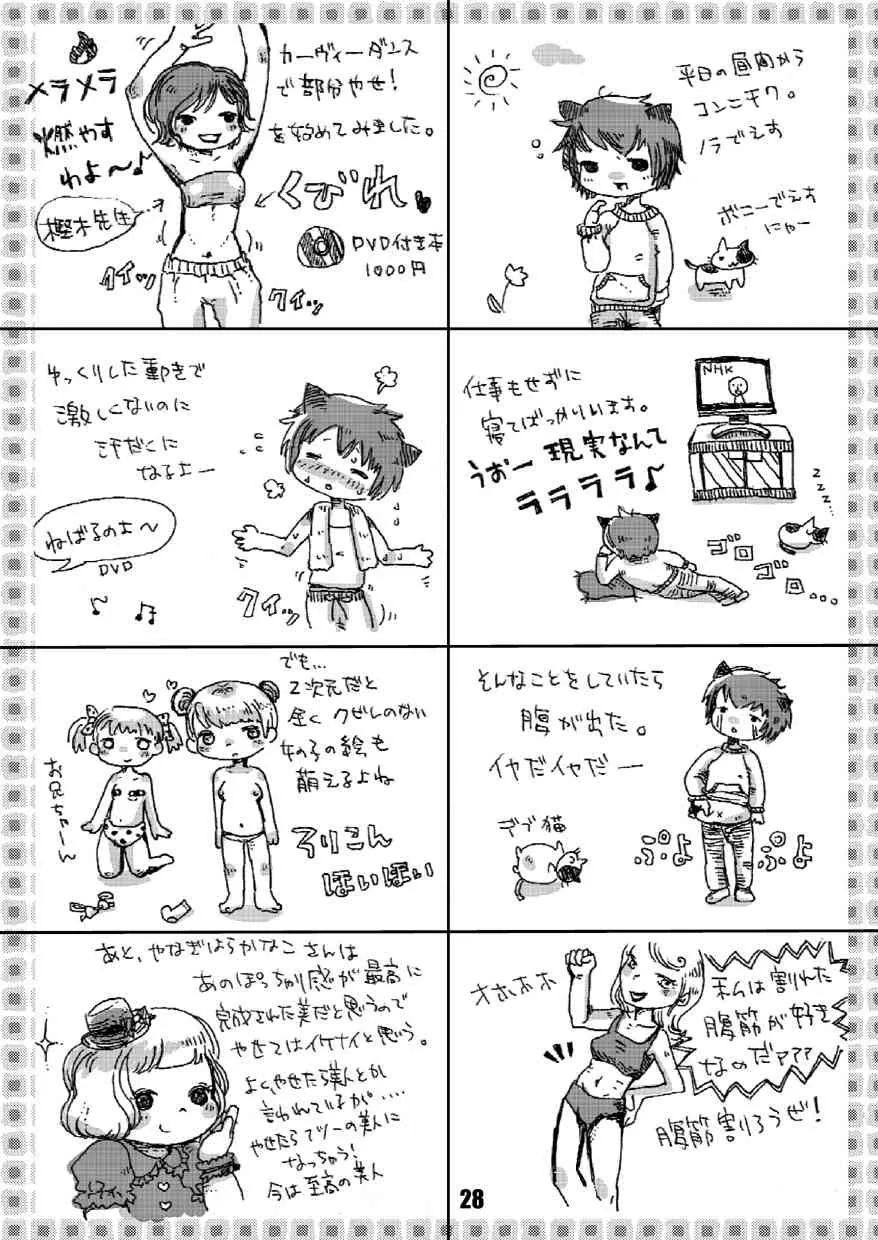 平日の昼間から
コンニチワ。
ノラでえす
ボニーでえす
にゃー
仕事もせずに
寝てばっかりいます。
うおー現実なんて
ララララ♪
NHK
zzz...
ゴロ
ゴロ...
そんなことをしていたら
腹が出た。
イヤだイヤだー
デブ猫
ぷよ
ぷよ
オホホホ
私は割れた
腹筋が好き
なのだァァァ
腹筋割ろうぜ!
カーヴィーダンス
で部分やせ!
を始めてみました。
メラメラ
燃やす
わよ〜♪
樫木先生
くびれ
DVD付き本
1000円
クイッ
クイッ
ゆっくりした動きで
激しくないのに
汗だくに
なるよー
ねばるのよ〜
DVD
クイッ
あと、やなぎはらかなこさんは
あのぽっちゃり感が最高に
完成された美だと思うので
やせてはイケナイと思う。
よく、やせたら美人とか
言われているが....
やせたらフツーの美人に
なっちゃう!
今は至高の美人
28